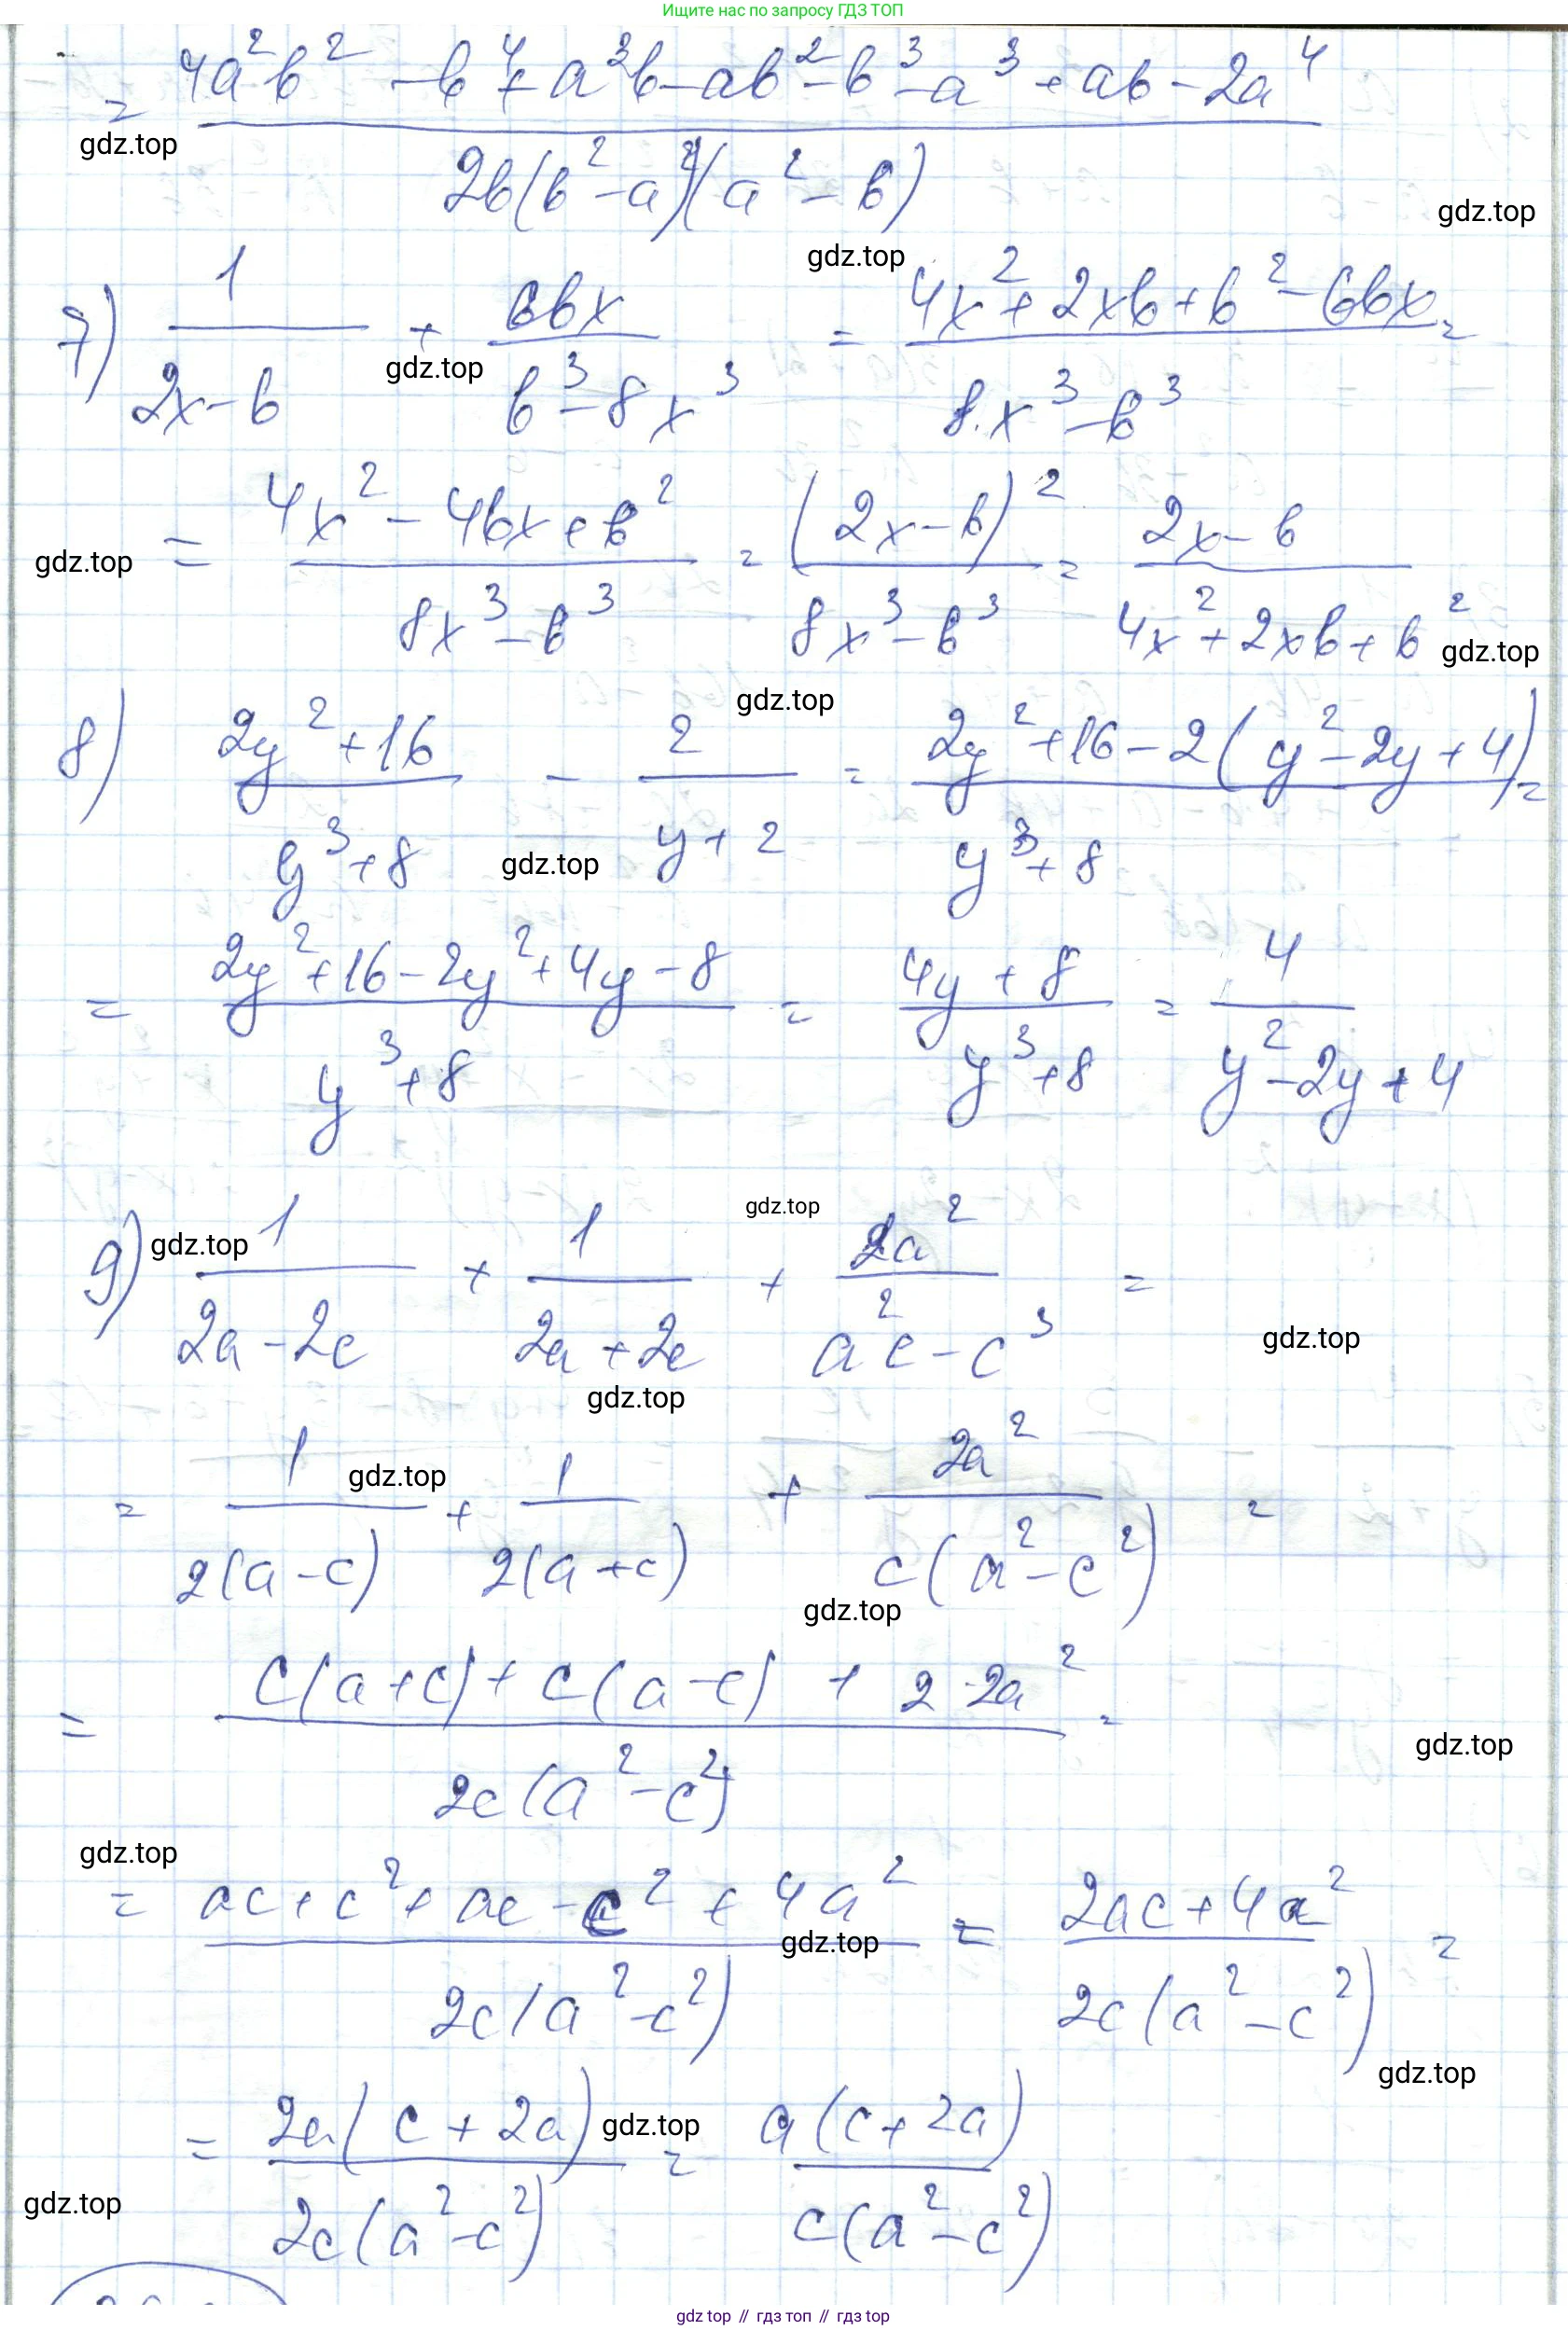 Ищите нас по запросу ГДЗ ТОП
= (4a²b² - b⁴ + a³b - ab² - b³ - a³ + ab - 2a⁴) / (2b(b² - a²)(a² - b))
gdz.top
gdz.top
gdz.top
7) 1/(2x - b) + 6bx/(b³ - 8x³) = (4x² + 2xb + b² - 6bx)/(8x³ - b³) =
gdz.top
= (4x² - 4bx + b²)/(8x³ - b³) = (2x - b)²/(8x³ - b³) = (2x - b)/(4x² + 2xb + b²)
gdz.top
gdz.top
gdz.top
8) (2y² + 16)/(y³ + 8) - 2/(y + 2) = (2y² + 16 - 2(y² - 2y + 4))/(y³ + 8) =
gdz.top
= (2y² + 16 - 2y² + 4y - 8)/(y³ + 8) = (4y + 8)/(y³ + 8) = 4/(y² - 2y + 4)
gdz.top
gdz.top
9) 1/(2a - 2c) + 1/(2a + 2c) + 2a²/(a²c - c³) =
gdz.top
gdz.top
gdz.top
= 1/(2(a - c)) + 1/(2(a + c)) + 2a²/(c(a² - c²)) =
gdz.top
= (c(a + c) + c(a - c) + 2·2a²)/(2c(a² - c²)) =
gdz.top
gdz.top
= (ac + c² + ac - c² + 4a²)/(2c(a² - c²)) = (2ac + 4a²)/(2c(a² - c²)) =
gdz.top
gdz.top
= 2a(c + 2a)/(2c(a² - c²)) = a(c + 2a)/(c(a² - c²))
gdz.top
gdz.top
gdz top // гдз топ // гдз top